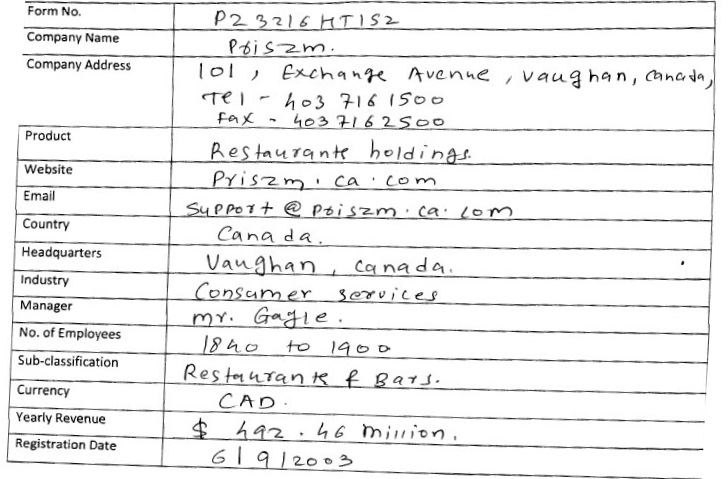 Form No. P23216HT1S2
Company Name Priszm.
Company Address 101, Exchange Avenue, Vaughan, Canada,
Tel - 403 716 1500
Fax - 403 716 2500
Product Restaurante holdings.
Website Priszm.ca.com
Email Support@Priszm.ca.com
Country Canada.
Headquarters Vaughan, Canada.
Industry Consumer services
Manager Mr. Gagle.
No. of Employees 1840 to 1900
Sub-classification Restaurante & Bars.
Currency CAD.
Yearly Revenue $ 492.46 Million.
Registration Date 6/9/2003